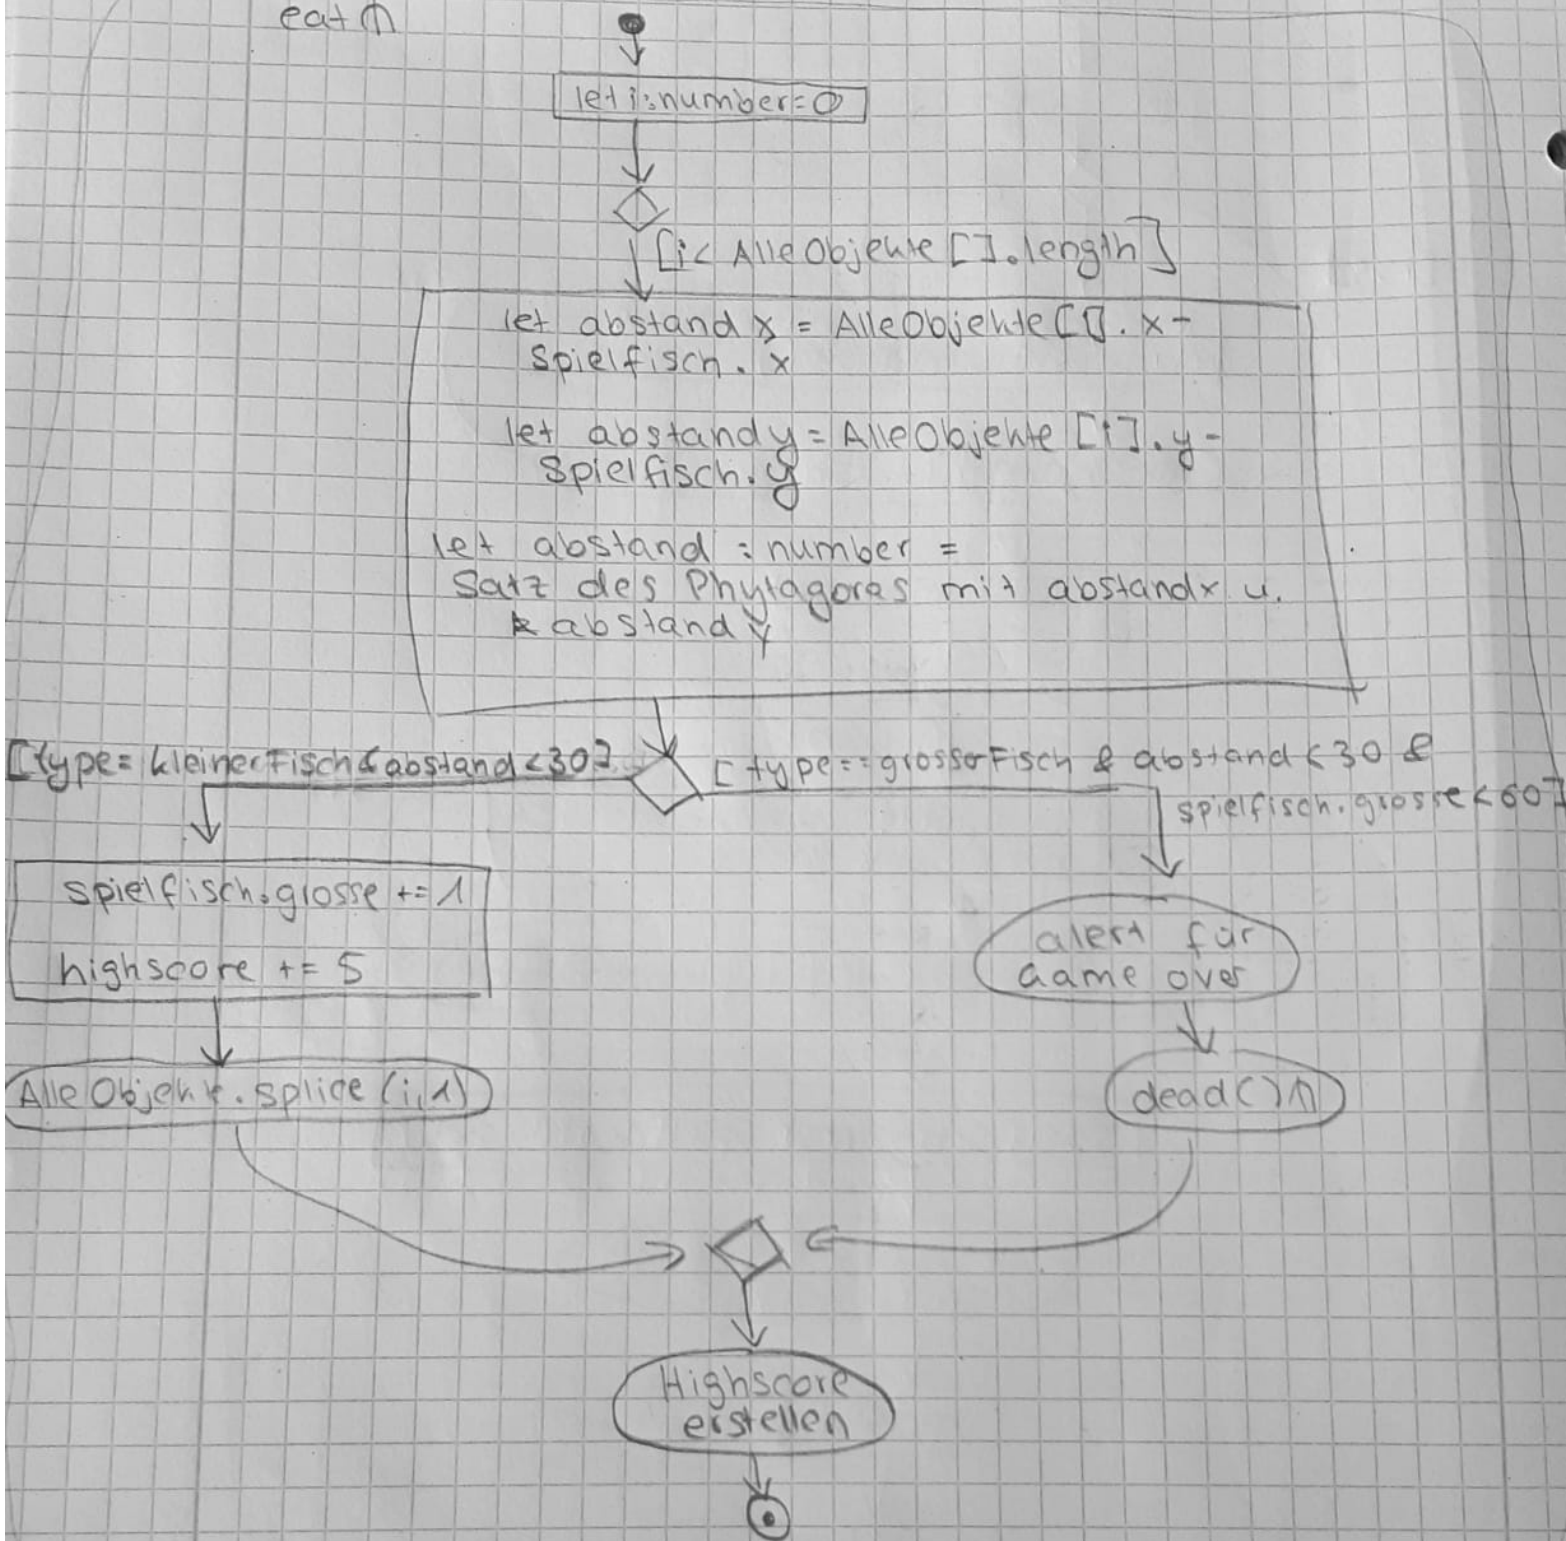 eat
let i:number=0
[i< AlleObjekte[].length]
let abstand x = AlleObjekte[i].x-
spielfisch.x
let abstand y = AlleObjekte[i].y-
spielfisch.y
let abstand : number =
Satz des Phytagores mit abstandx u.
abstand y
[type= kleinerFisch & abstand <30]
[type==grosserFisch & abstand <30 &
spielfisch.grosse<60]
spielfisch.grosse +=1
highscore += 5
alert für
Game over
AlleObjekt.splice(i,1)
dead()
Highscore
erstellen